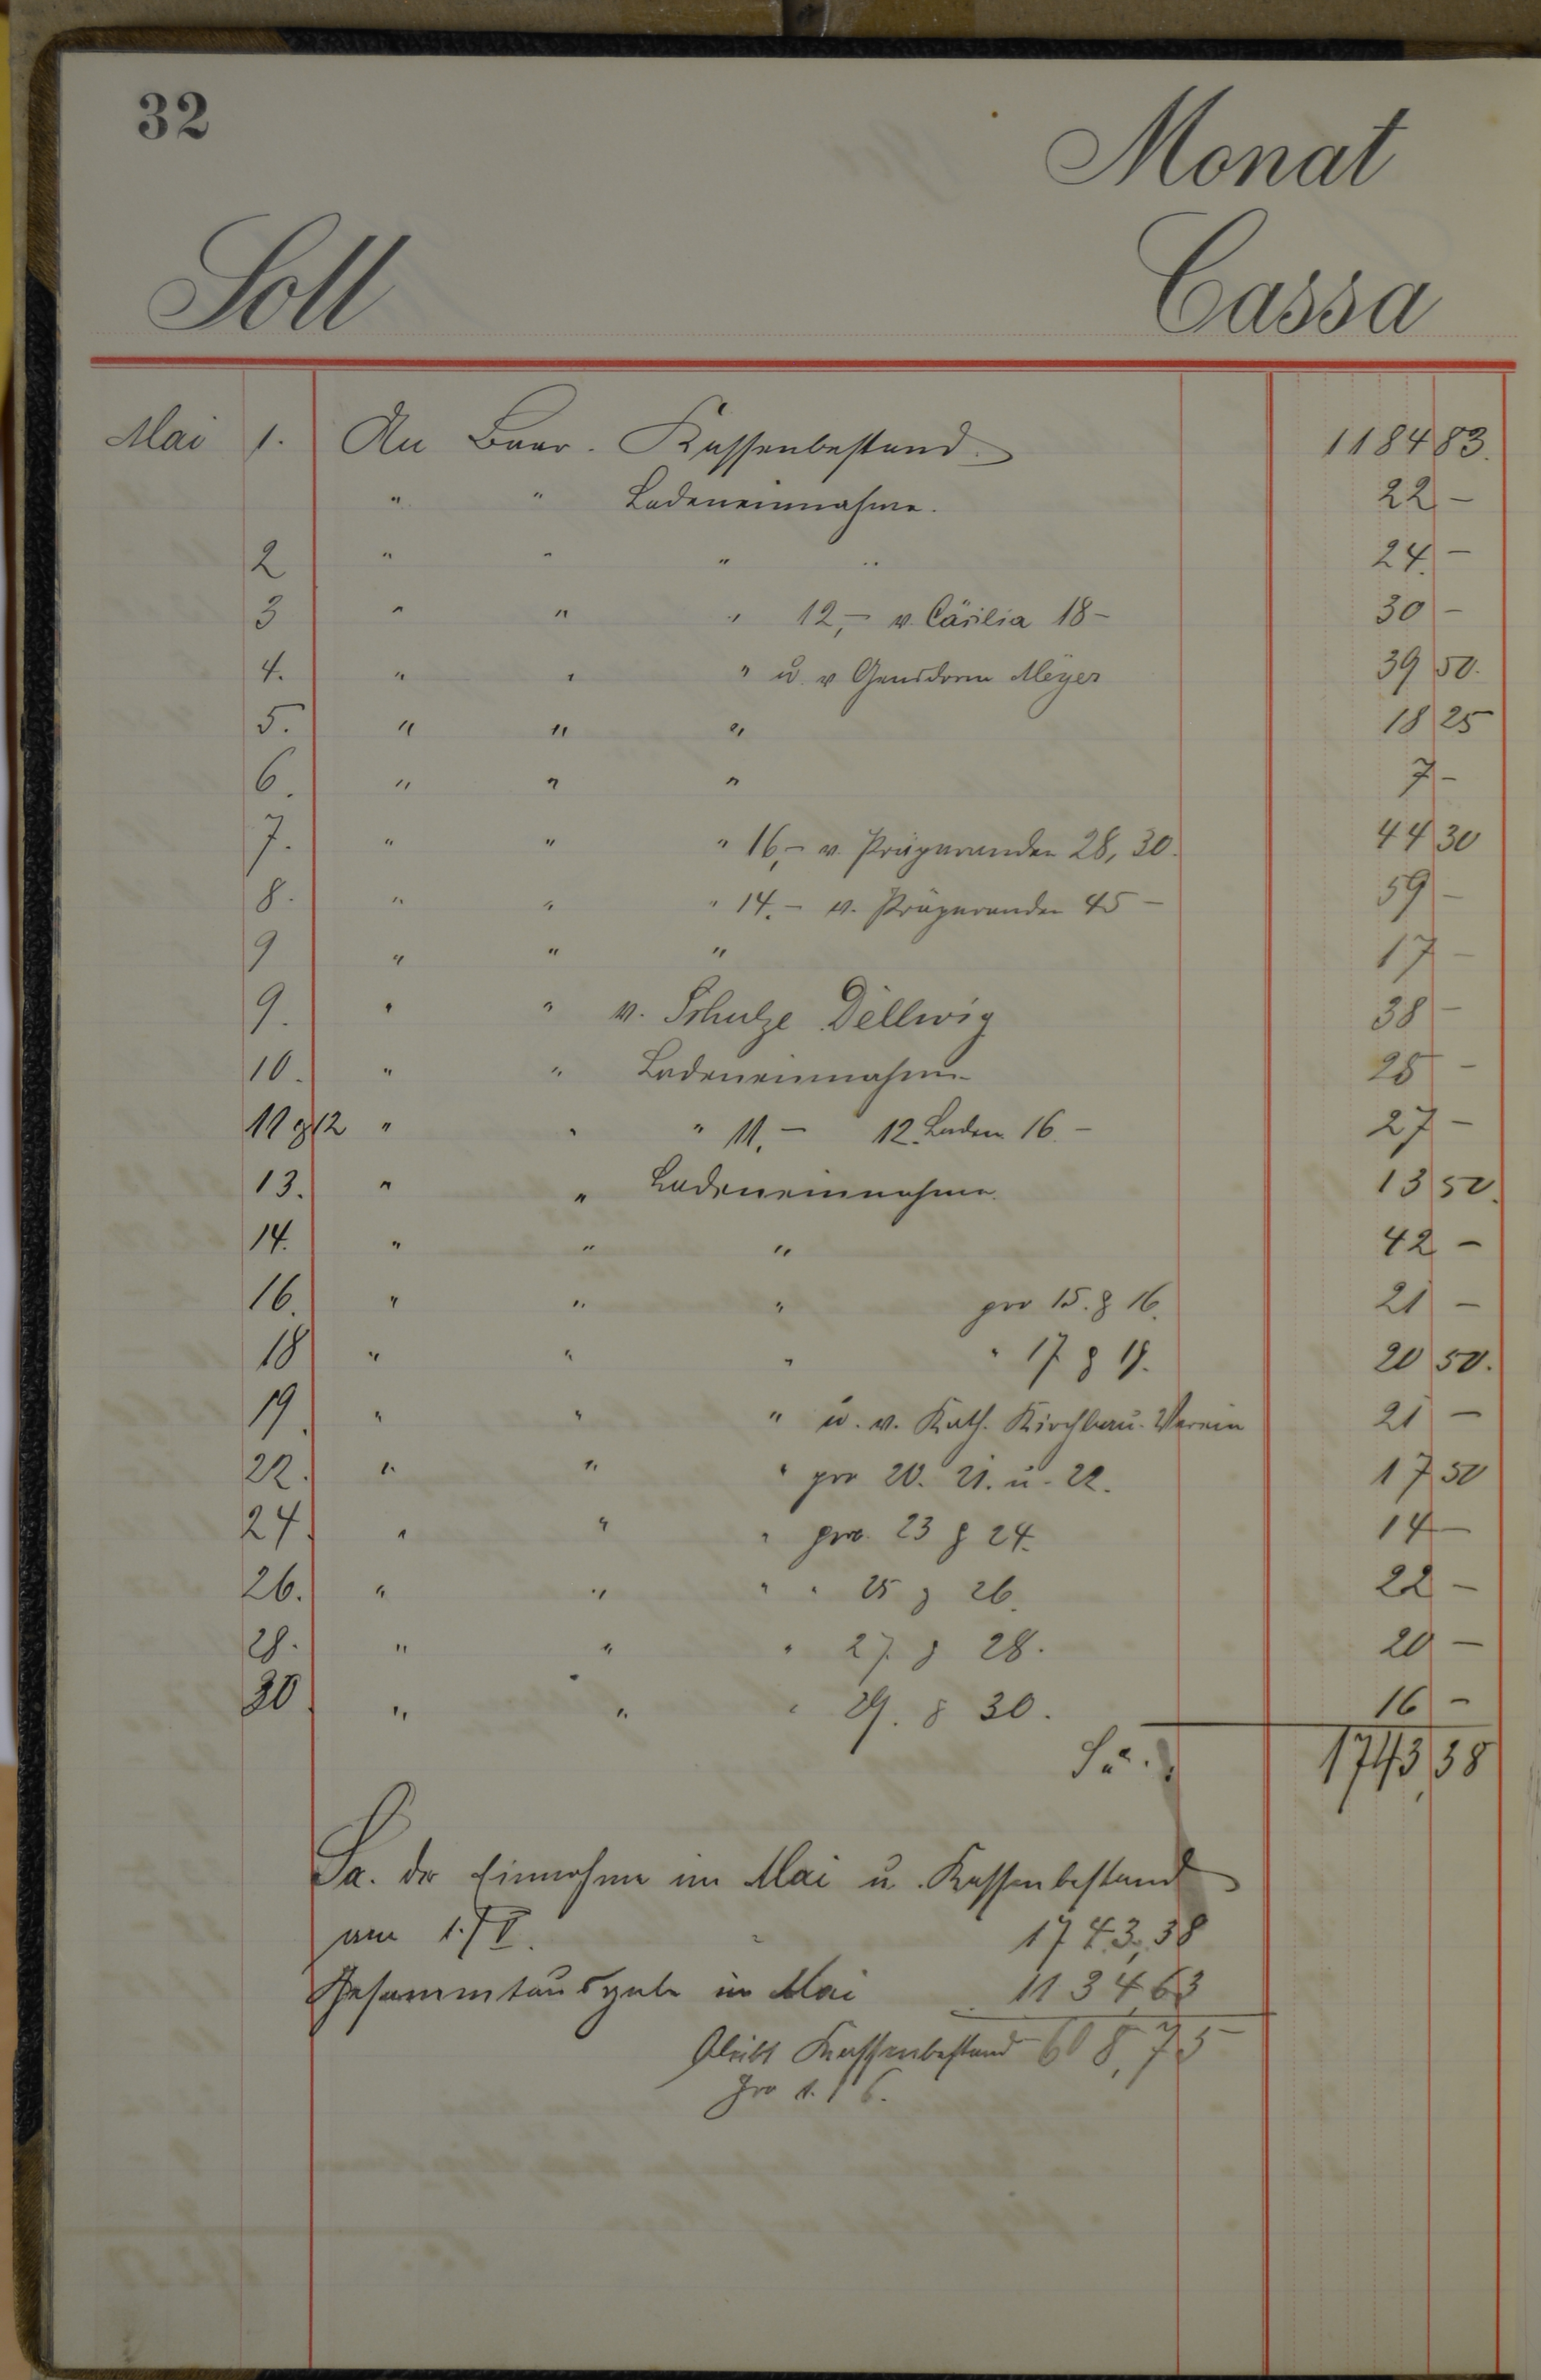 32
Monat
Soll Cassa
Mai 1. An Baar. Kassenbestand. 1184 83.
" " Ladeneinnahme. 22 -
2 " " " " 24. -
3 " " " 12,- v. Cäsilia 18- 30 -
4. " " " u. v Meyer 39 50.
5. " " " 18 25
6. " " " 7 -
7. " " " 16,- v. Präparanden 28,30. 44 30
8. " " " 14.- v. Präparanden 45 - 59 -
9 " " " 17 -
9. " " v. Schulze Dellwig 38 -
10. " " Ladeneinnahme 25 -
11 & 12 " " " 11.- 12. Laden 16.- 27 -
13. " " Ladeneinnahme. 13 50.
14. " " " 42 -
16. " " " pro 15. & 16. 21 -
18 " " " " 17 & 18. 20 50.
19. " " " u. v. Kath. Kirchbau-Verein 21 -
22. " " " pro 20. 21. u. 22. 17 50
24. " " " pro. 23 & 24. 14 -
26. " " " " 25 & 26. 22 -
28. " " " 27. & 28. 20 -
30. " " " 29. & 30. 16 -
Sa. 1743,38
Sa. der Einnahme im Mai u. Kassenbestand
am 1./5. 1743,38
Gesammtausgabe im Mai 1134 63
Bleibt Kassenbestand 608,75
pro 1./6.